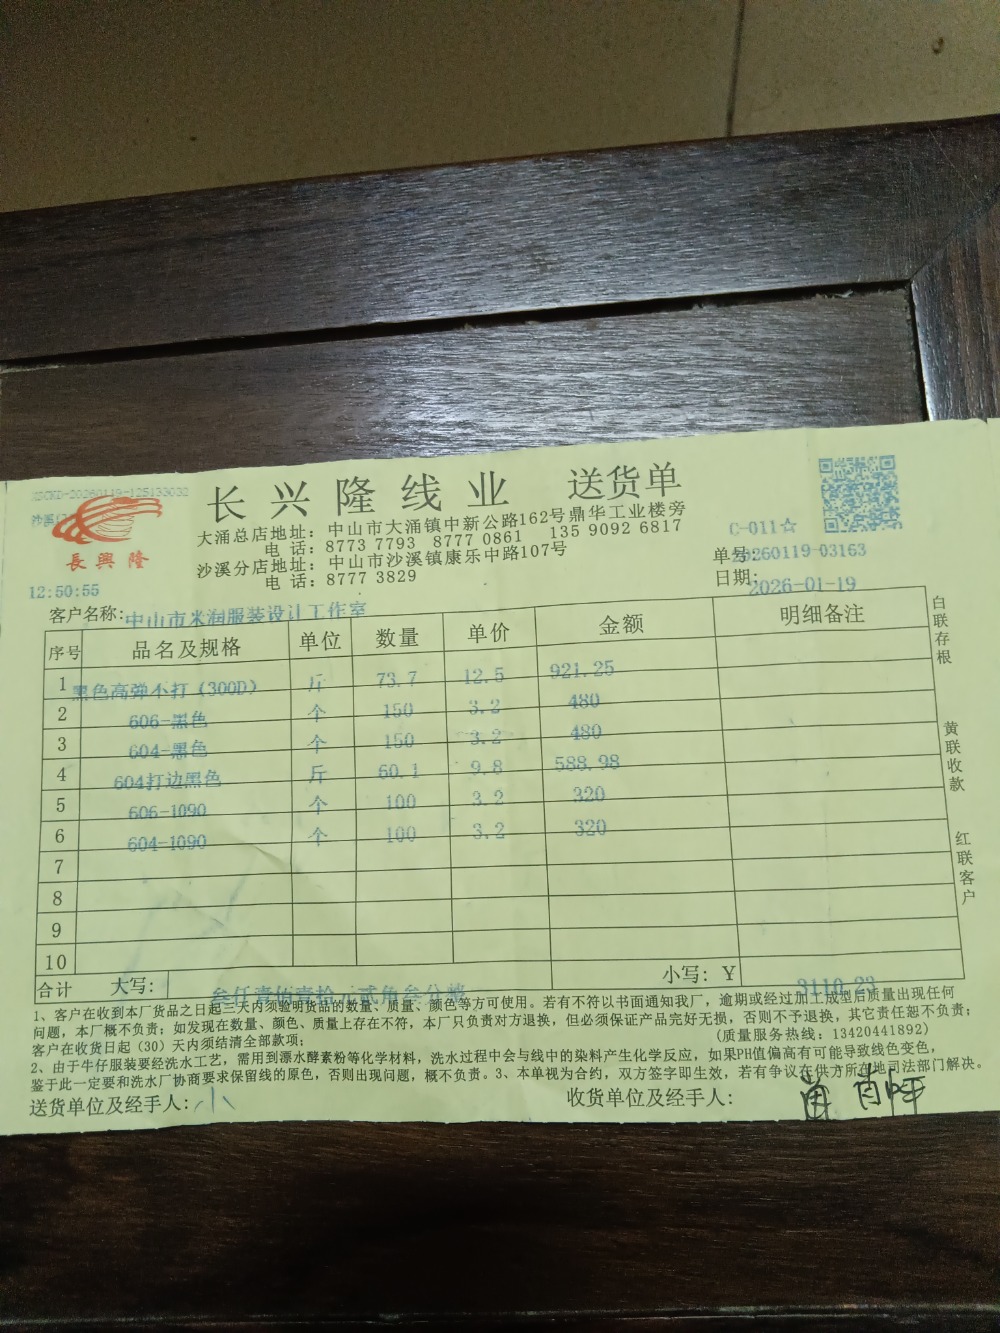 XSCKD-20260119-125133032
沙溪
長興隆
長兴隆线业 送货单
大涌总店地址：中山市大涌镇中新公路162号鼎华工业楼旁
电 话：8773 7793 8777 0861 135 9092 6817
沙溪分店地址：中山市沙溪镇康乐中路107号
电 话：8777 3829
C-011☆
单号：20260119-03163
日期：2026-01-19
12:50:55
客户名称：中山市米润服装设计工作室
序号 品名及规格 单位 数量 单价 金额 明细备注
1 黑色高弹小打（300D） 斤 73.7 12.5 921.25
2 606-黑色 个 150 3.2 480
3 604-黑色 个 150 3.2 480
4 604打边黑色 斤 60.1 9.8 588.98
5 606-1090 个 100 3.2 320
6 604-1090 个 100 3.2 320
7
8
9
10
合计 大写：叁仟壹佰壹拾元贰角叁分整 小写：￥ 3110.23
白联存根
黄联收款
红联客户
1、客户在收到本厂货品之日起三天内须验明货品的数量、质量、颜色等方可使用。若有不符以书面通知我厂，逾期或经过加工成型后质量出现任何
问题，本厂概不负责；如发现在数量、颜色、质量上存在不符，本厂只负责对方退换，但必须保证产品完好无损，否则不予退换，其它责任恕不负责；
客户在收货日起（30）天内须结清全部款项； (质量服务热线：13420441892)
2、由于牛仔服装要经洗水工艺，需用到漂水酵素粉等化学材料，洗水过程中会与线中的染料产生化学反应，如果PH值偏高有可能导致线色变色，
鉴于此一定要和洗水厂协商要求保留线的原色，否则出现问题，概不负责。3、本单视为合约，双方签字即生效，若有争议在供方所在地司法部门解决。
送货单位及经手人：小 收货单位及经手人：